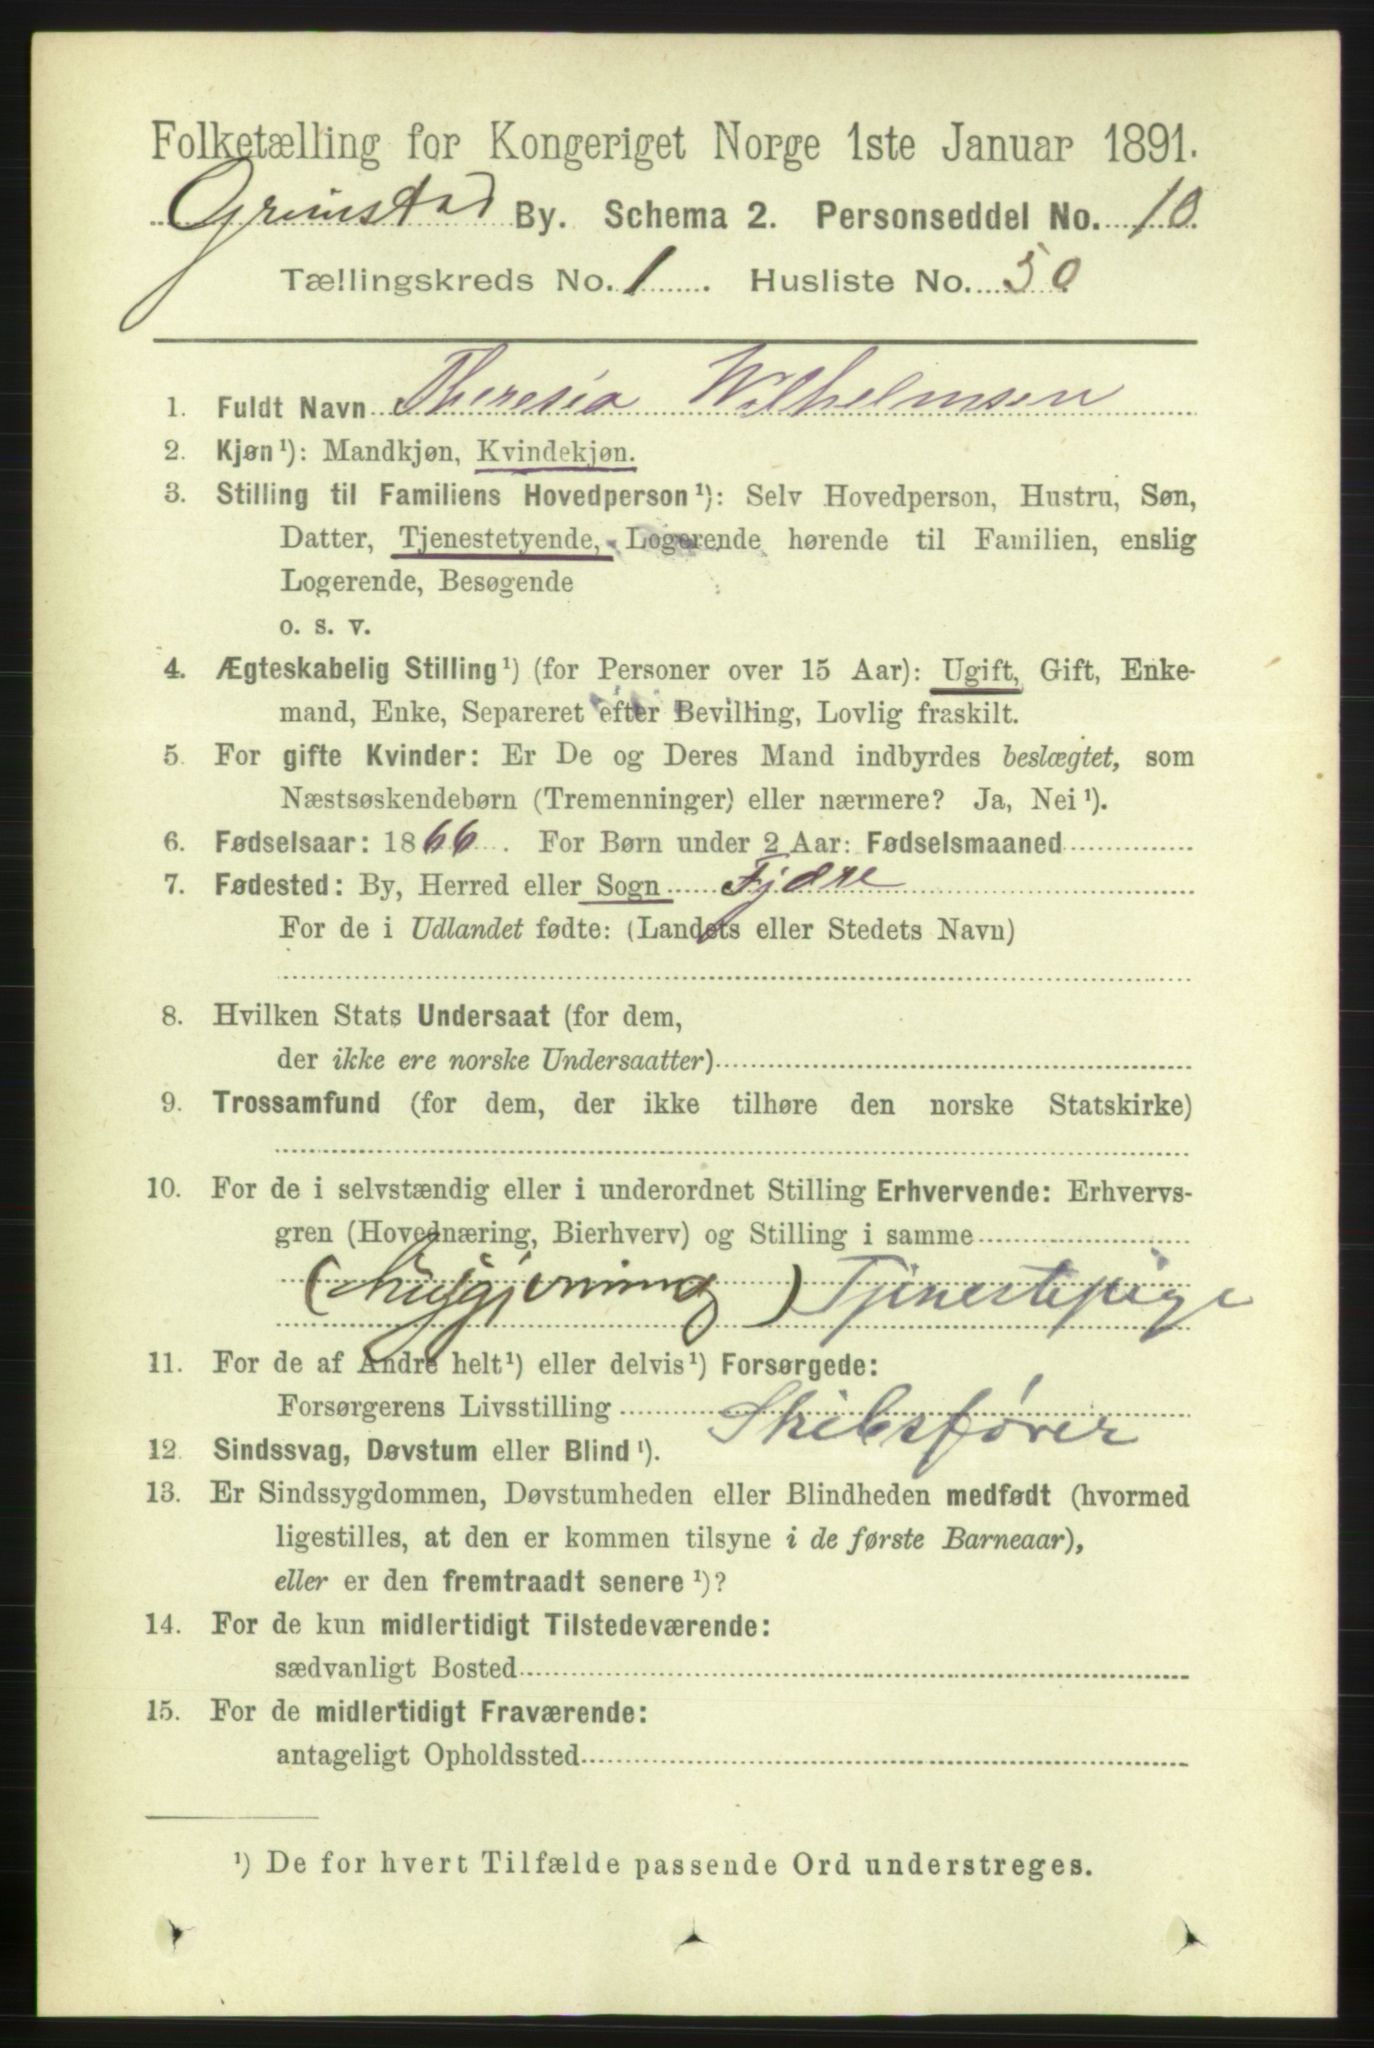 Folketælling for Kongeriget Norge 1ste Januar 1891.
Grimstad By. Schema 2. Personseddel No. 10.
Tællingskreds No. 1. Husliste No. 50
1. Fuldt Navn Theresia Wilhelmsen
2. Kjøn¹): Mandkjøn, Kvindekjøn.
3. Stilling til Familiens Hovedperson¹): Selv Hovedperson, Hustru, Søn,
Datter, Tjenestetyende, Logerende hørende til Familien, enslig
Logerende, Besøgende
o. s. v.
4. Ægteskabelig Stilling¹) (for Personer over 15 Aar): Ugift, Gift, Enke-
mand, Enke, Separeret efter Bevilling, Lovlig fraskilt.
5. For gifte Kvinder: Er De og Deres Mand indbyrdes beslægtet, som
Næstsøskendebørn (Tremenninger) eller nærmere? Ja, Nei¹).
6. Fødselsaar: 1866. For Børn under 2 Aar: Fødselsmaaned
7. Fødested: By, Herred eller Sogn Fjære
For de i Udlandet fødte: (Landets eller Stedets Navn)
8. Hvilken Stats Undersaat (for dem,
der ikke ere norske Undersaatter)
9. Trossamfund (for dem, der ikke tilhøre den norske Statskirke)
10. For de i selvstændig eller i underordnet Stilling Erhvervende: Erhvervs-
gren (Hovednæring, Bierhverv) og Stilling i samme
( ) Tjenestepige
11. For de af Andre helt¹) eller delvis¹) Forsørgede:
Forsørgerens Livsstilling Skibsfører
12. Sindssvag, Døvstum eller Blind¹).
13. Er Sindssygdommen, Døvstumheden eller Blindheden medfødt (hvormed
ligestilles, at den er kommen tilsyne i de første Barneaar),
eller er den fremtraadt senere¹)?
14. For de kun midlertidigt Tilstedeværende:
sædvanligt Bosted
15. For de midlertidigt Fraværende:
antageligt Opholdssted
¹) De for hvert Tilfælde passende Ord understreges.